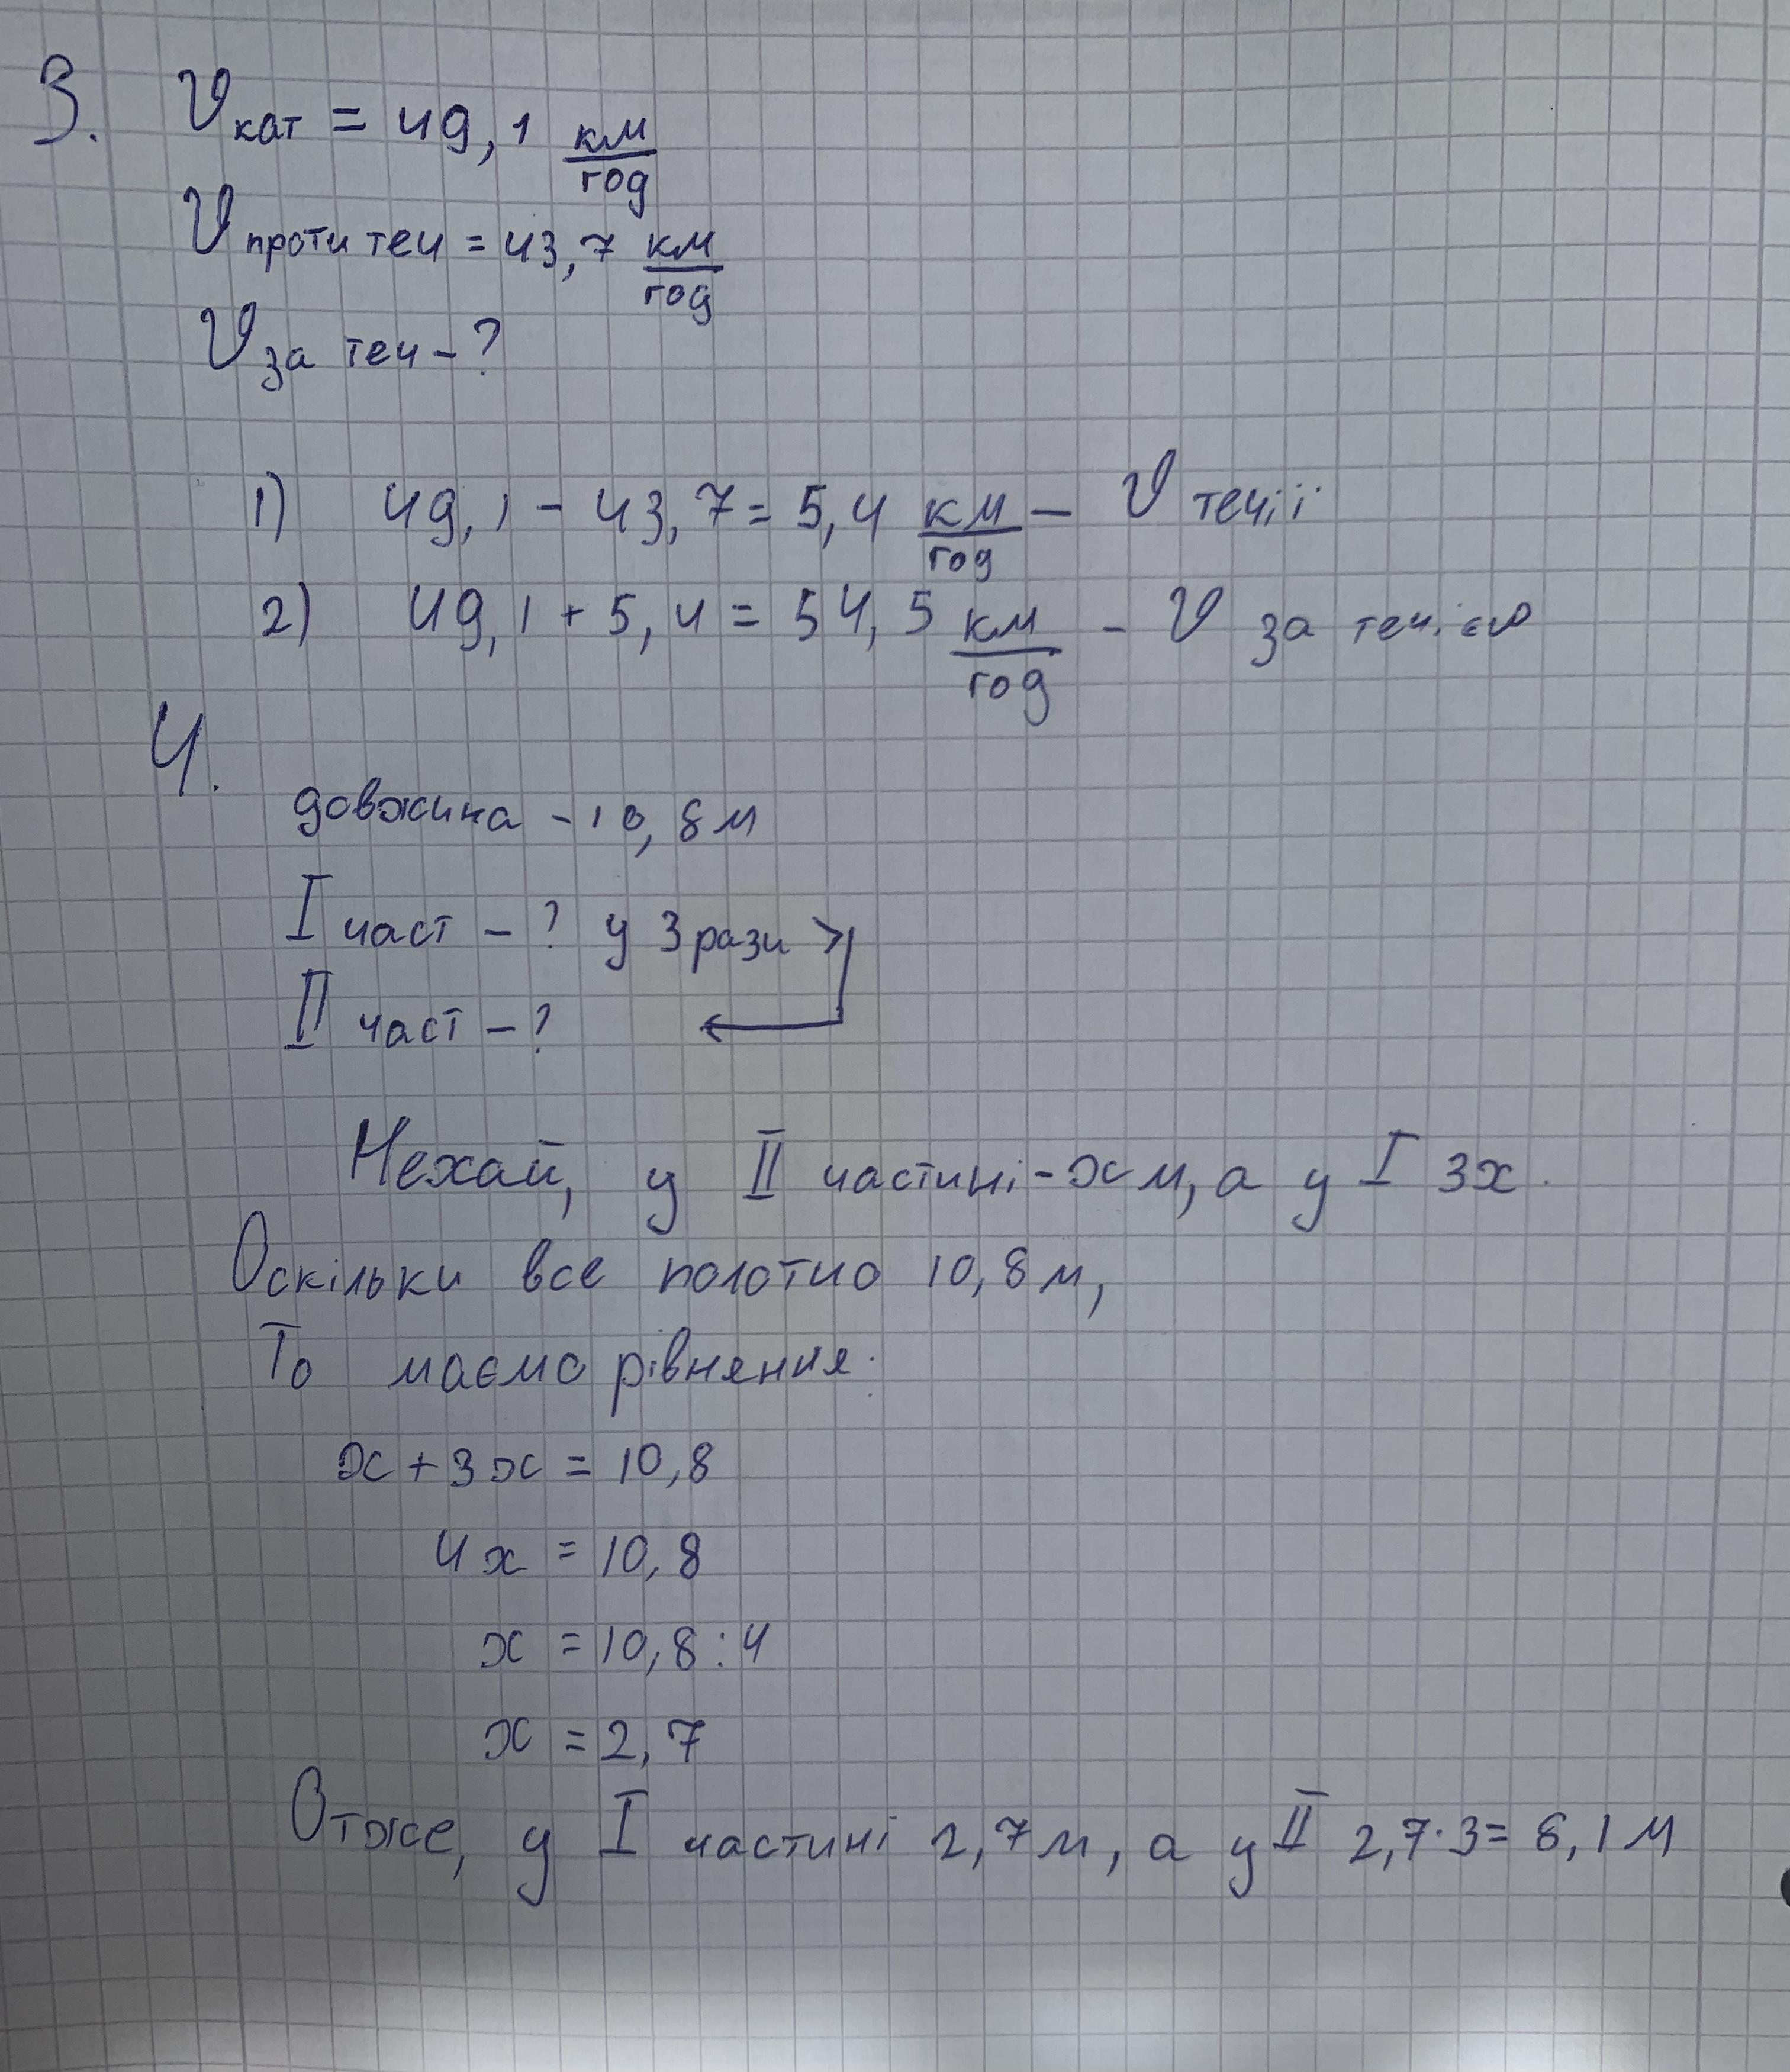 3. Vкат = 49,1 км/год
Vпроти теч = 43,7 км/год
Vза теч - ?
1) 49,1 - 43,7 = 5,4 км/год - V течії
2) 49,1 + 5,4 = 54,5 км/год - V за течією
4.
довжина - 10,8 м
I част - ? у 3 рази >
II част - ?
Нехай, у II частині - x м, а у I 3x.
Оскільки все полотно 10,8 м,
То маємо рівняння:
x + 3x = 10,8
4x = 10,8
x = 10,8 : 4
x = 2,7
Отже, у I частині 2,7 м, а у II 2,7 · 3 = 8,1 м